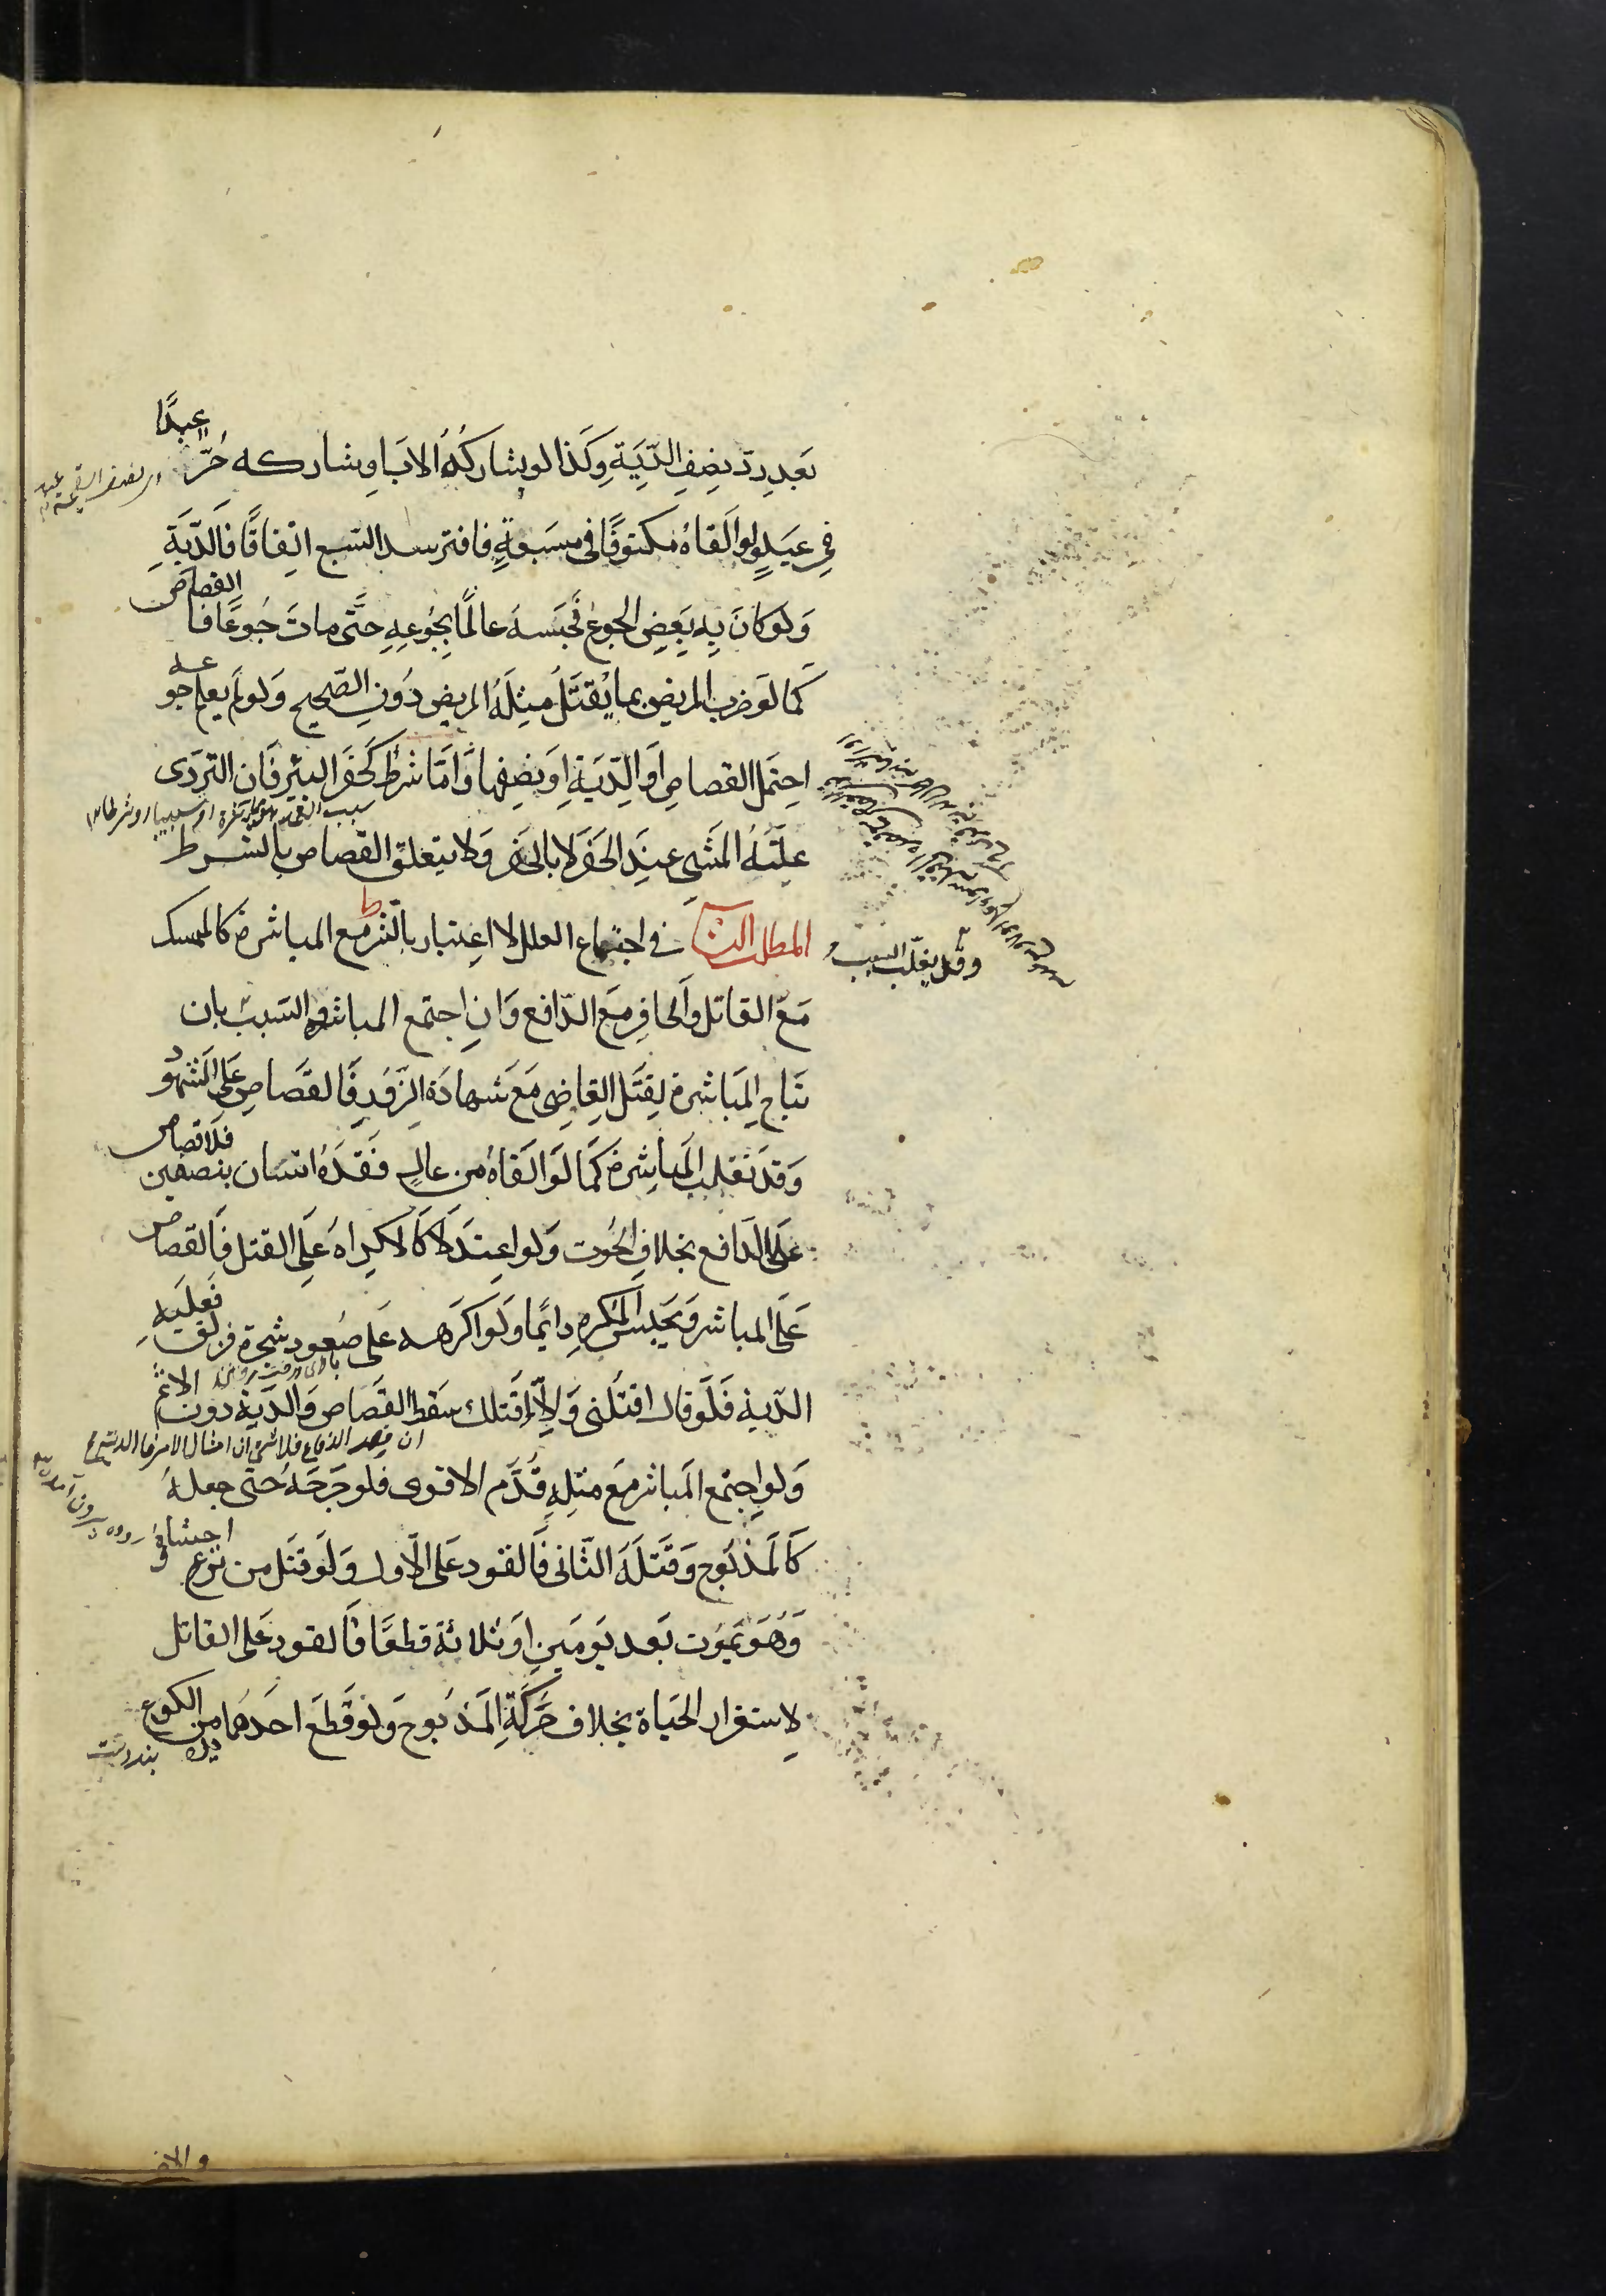 بعد رد نصف الدية وكذا لو يشاركه الاب او يشاركه حر عبدا
في عبد ولو القاه مكتوفا في مسبعة فافترسه السبع اتفاقا فالدية
ولو كان به بعض الجوع فحبسه عالما بجوعه حتى مات جوعا فالقصاص
كما لو ضرب المريض بما يقتل مثله المريض دون الصحيح ولو لم يعلم جوعه
احتمل القصاص او الدية او نصفها واما شرط كحفر البئر فان التردى
علته المشي عند الحفر لا بالحفر ولا يتعلق القصاص بالشرط
المطلب الثاني في اجتماع العلل لا اعتبار بالشرط مع المباشرة كالممسك
وقد يغلب السبب
مع القاتل والحافر مع الدافع وان اجتمع المباشر والسبب بان
تباح المباشرة لقتل القاضي مع شهادة الزور فالقصاص على الشهود
وقد تغلب المباشرة كما لو القاه من عال فقده انسان بنصفين فلا قصاص
على الدافع بخلاف الحوت ولو اعتدلا كالاكراه على القتل فالقصاص
على المباشر ويحبس المكره دايما ولو اكرهه على صعود شجرة فزلق فعليه
الدية فلو قال اقتلني والا قتلتك سقط القصاص والدية دون الاثم
ولو اجتمع المباشر مع مثله قدم الاقوى فلو جرحه حتى جعله
كالمذبوح وقتله الثاني فالقود على الاول ولو قتل من نزع احشاؤه
وهو يموت بعد يومين او ثلاثة قطعا فالقود على القاتل
لاستقرار الحياة بخلاف حركة المذبوح ولو قطع احدهما من الكوع
بند دست
والاخر